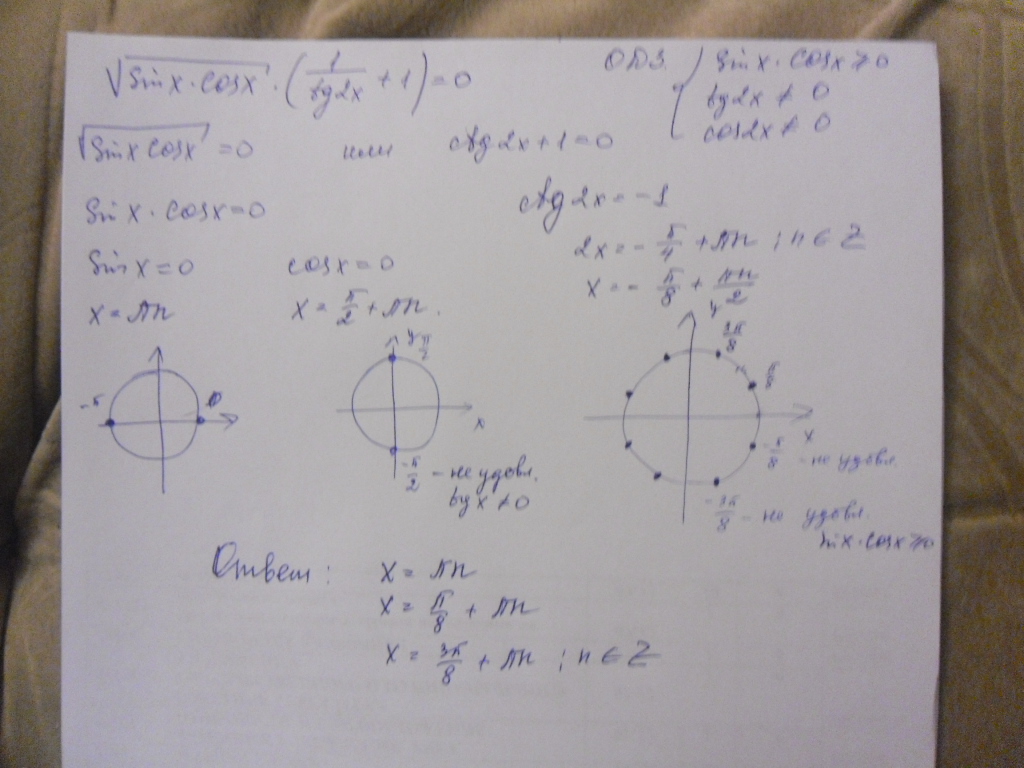 √(sin x · cos x) · (1/tg2x + 1) = 0
ОДЗ. { sin x · cos x ≥ 0
tg2x ≠ 0
cos2x ≠ 0
√(sin x cos x) = 0 или ctg 2x + 1 = 0
sin x · cos x = 0
ctg 2x = -1
sin x = 0 cos x = 0
2x = - π/4 + πn ; n ∈ Z
x = πn x = π/2 + πn.
x = - π/8 + πn/2
-π 0
y π/2
x
-π/2 - не удовл.
tg x ≠ 0
y
3π/8
π/8
x
-π/8 - не удовл.
-3π/8 - не удовл.
sin x · cos x ≥ 0
Ответ: x = πn
x = π/8 + πn
x = 3π/8 + πn ; n ∈ Z